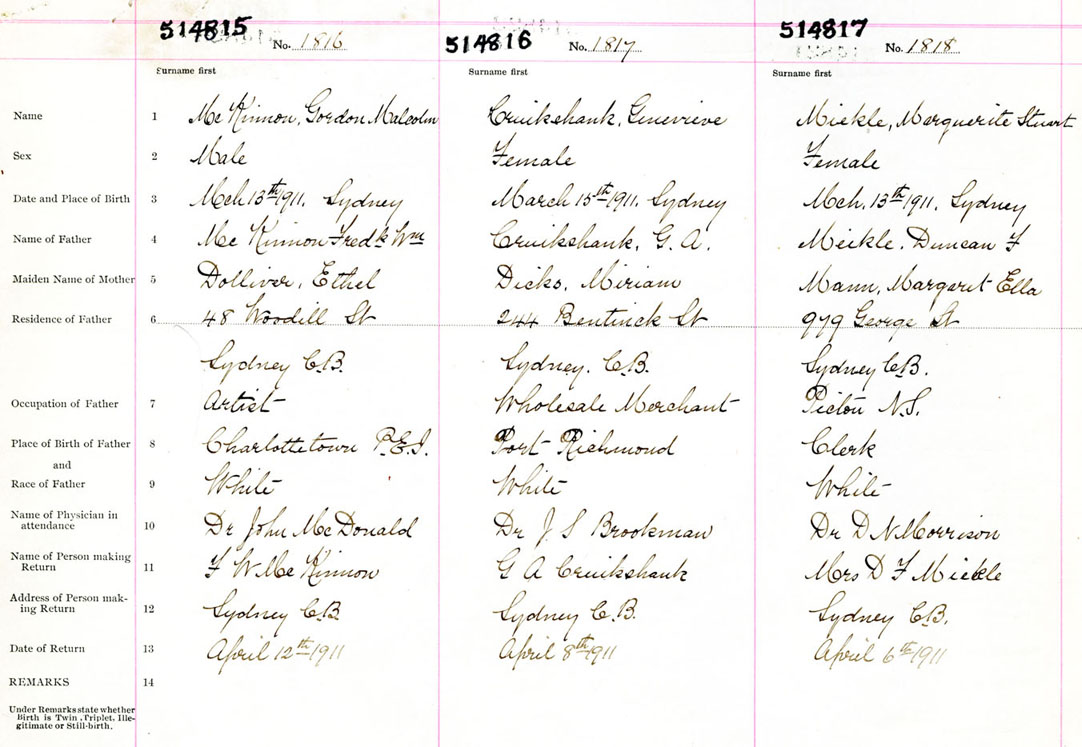 514815 No. 1816 514816 No. 1817 514817 No. 1818
Surname first Surname first Surname first
Name 1 McKinnon, Gordon Malcolm Cruikshank, Genevieve Miekle, Marguerite Stuart
Sex 2 Male Female Female
Date and Place of Birth 3 Mch 13th 1911. Sydney March 15th 1911. Sydney Mch. 13th 1911. Sydney
Name of Father 4 McKinnon Fredk Wm Cruikshank, G. A. Meikle. Duncan F
Maiden Name of Mother 5 Dolliver, Ethel Dicks, Miriam Mann, Margaret Ella
Residence of Father 6 48 Woodill St 244 Bentinck St 979 George St
Sydney C.B. Sydney. C.B. Sydney C.B.
Occupation of Father 7 Artist Wholesale Merchant Pictou N.S.
Place of Birth of Father 8 Charlottetown P.E.I. Port Richmond Clerk
and
Race of Father 9 White White White
Name of Physician in
attendance 10 Dr John McDonald Dr J S Brookman Dr D N Morrison
Name of Person making
Return 11 F W McKinnon G A Cruikshank Mrs D F Miekle
Address of Person mak-
ing Return 12 Sydney C.B. Sydney C.B. Sydney C.B.
Date of Return 13 April 12th 1911 April 8th 1911 April 6th 1911
REMARKS 14
Under Remarks state whether
Birth is Twin, Triplet, Ille-
gitimate or Still-birth.